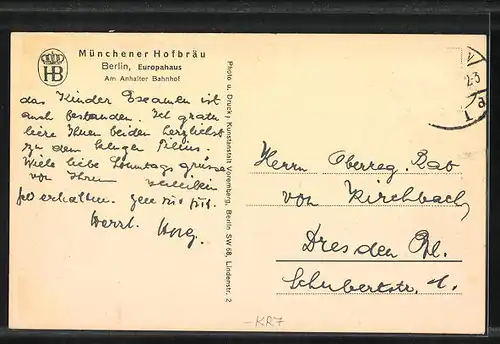 Münchener Hofbräu
Berlin, Europahaus
Am Anhalter Bahnhof
HB
das Kinder Examen ist
auch bestanden. Ich gratu
liere Ihnen beiden herzlichst
zu dem
Viele liebe Sonntags grüsse
von Ihrem
erhalten.
Herzl.
Photo u. Druck; Kunstanstalt Voremberg, Berlin SW 68, Lindenstr. 2
Herrn Oberreg. Bab
von Kirchbach
Dresden
Schubertstr.
-KR7